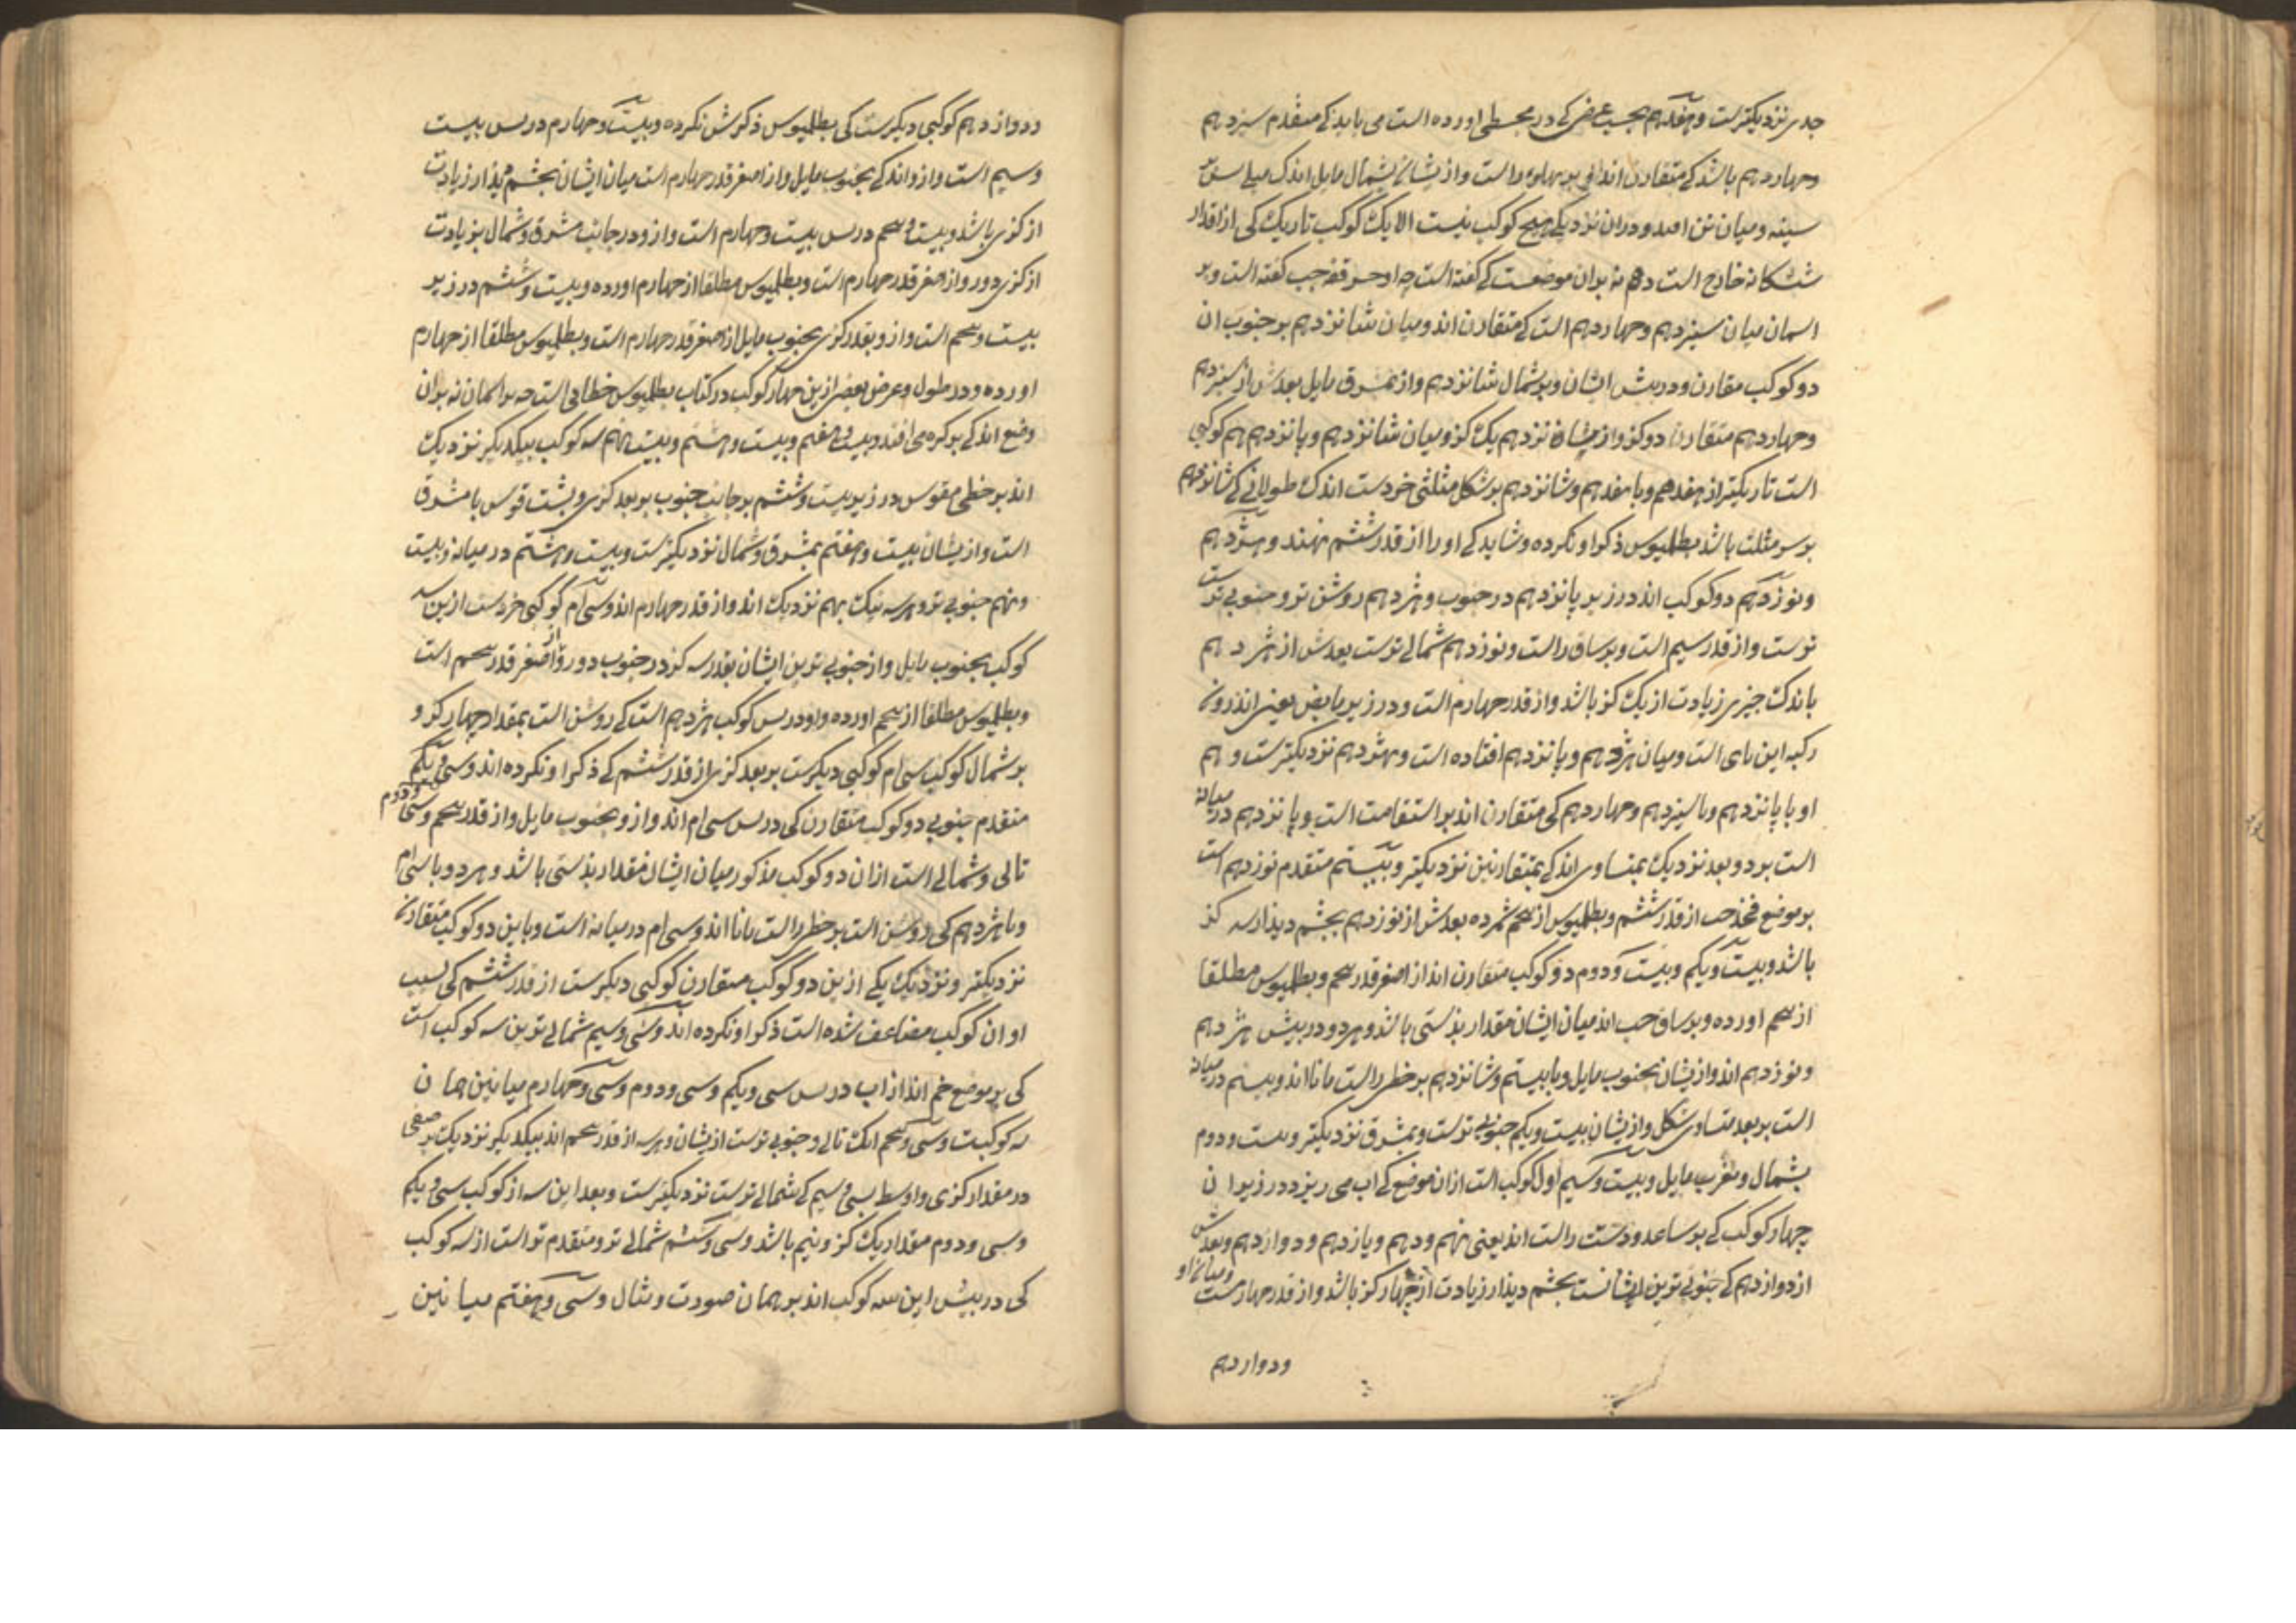 جدی نزدیکترست و هفدهم بحسب عرضی که در مجسطی اورده است می باید که متقدم سیزدهم
وچهاردهم باشد که متقارن اند بر پهلوی راست و ازیشان بشمال مایل اندک
سینه ومیان تن امد ودران نزدیکی هیچ کوکب نیست الا یک کوکب تاریک کی از اقدار
ششکانه خارج است وهم نه بران موضعست که گفته است چه او گفته است وبر
اسمان میان سیزدهم وچهاردهم است که متقارن اند ومیان شانزدهم بر جنوب ان
دو کوکب مقارن ودرپیش ایشان وبر شمال شانزدهم واز مشرق مایل بعدش از سیزدهم
وچهاردهم متقارن دو کز واز شانزدهم یک کز ومیان شانزدهم وپانزدهم هم کوکبی
است تاریکتر از هفدهم وبا هفدهم وشانزدهم بر شکل مثلثی خردست اندک طولانی که شانزدهم
بر سر مثلث باشد بطلمیوس ذکر او نکرده وشاید که او را از قدر ششم نهند وهژدهم
ونوزدهم دو کوکب اند در زیر پانزدهم در جنوب وهژدهم روشن تر وجنوبی تر
ترست واز قدر سیم است وبر ساق راست ونوزدهم شمالی ترست بعدش از هژدهم
باندک چیزی زیادت از یک کز باشد واز قدر چهارم است ودر زیر مابض یعنی اندرون
رکبه این پای است ومیان هژدهم وپانزدهم افتاده است وبهژدهم نزدیکترست وهم
او با پانزدهم وبا سیزدهم وچهاردهم کی متقارن اند بر استقامت است وپانزدهم در میانه
است بر دو بعد نزدیک بمتساوی اند که بمتقارنین نزدیکتر وبیستم متقدم نوزدهم است
بر موضع فخذ چپ از قدر ششم وبطلمیوس از پنجم شمرده بعدش از نوزدهم بچشم دیدار سه کز
باشد وبیست ویکم وبیست ودوم دو کوکب متقارن اند از اصغر قدر پنجم وبطلمیوس مطلقا
از پنجم اورده وبر ساق چپ اند میان ایشان مقدار بدستی باشد وهر دو در پیش هژدهم
ونوزدهم اند وازیشان بجنوب مایل وبا بیستم وشانزدهم بر خطی راست مانا اند وبیستم در میانه
است بر بعد متساوی شکل وازیشان بیست ویکم جنوبی ترست وبمشرق نزدیکتر وبیست ودوم
بشمال ومغرب مایل وبیست وسیم اول کوکب است ازان موضع که اب می ریزد در زیر ان
چهار کوکب که بر ساعد ودست راست اند یعنی نهم ودهم ویازدهم ودوازدهم وبعدش
از دوازدهم که جنوبی ترین ایشانست بچشم دیدار زیادت از چهار کز باشد واز قدر چهارمست ومیان او
ودوازدهم
ودوازدهم کوکبی دیگرست کی بطلمیوس ذکرش نکرده وبیست وچهارم در پس بیست
وسیم است وازو اندکی بجنوب مایل واز اصغر قدر چهارم است میان ایشان بچشم دیدار زیادت
از کزی باشد وبیست وپنجم در پس بیست وچهارم است وازو در جانب مشرق وشمال بزیادت
از کزی دور واز اصغر قدر چهارم است وبطلمیوس مطلقا از چهارم اورده وبیست وششم در زیر
بیست وپنجم است وازو بقدر کزی بجنوب مایل از اصغر قدر چهارم است وبطلمیوس مطلقا از چهارم
اورده ودر طول وعرض بعضی ازین چهار کوکب در کتاب بطلمیوس خطایی است چه بر اسمان نه بران
وضع اند که بر کره می افتد وبیست وهفتم وبیست وهشتم وبیست ونهم سه کوکب بیکدیگر نزدیک
اند بر خطی مقوس در زیر بیست وششم بر جانب جنوب بر بعد کزی وپشت قوس با مشرق
است وازیشان بیست وهفتم بمشرق وشمال نزدیکترست وبیست وهشتم در میانه وبیست
ونهم جنوبی تر وهر سه نیک بهم نزدیک اند واز قدر چهارم اند وسی ام کوکبی خردست ازین سه
کوکب بجنوب مایل واز جنوبی ترین ایشان بقدر سه کز در جنوب دور واز اصغر قدر پنجم است
وبطلمیوس مطلقا از پنجم اورده واو در پس کوکب هژدهم است که روشن است بمقدار چهار کز و
بر شمال کوکب سی ام کوکبی دیگرست بر بعد کزی از قدر ششم که ذکر او نکرده اند وسی ویکم
متقدم جنوبی دو کوکب متقارن کی در پس سی ام اند وازو بجنوب مایل واز قدر پنجم وسی ودوم
تالی وشمالی است ازان دو کوکب مذکور میان ایشان مقدار بدستی باشد وهر دو با سی ام
وبا هژدهم کی روشن است بر خطی راست مانا اند وسی ام در میانه است وباین دو کوکب متقارن
نزدیکتر ونزدیک یکی ازین دو کوکب متقارن کوکبی دیگرست از قدر ششم کی بسبب
او ان کوکب مضاعف شده است ذکر او نکرده اند وسی وسیم شمالی ترین سه کوکب است
کی بر موضع خم اند از اب در پس سی ویکم وسی ودوم وسی وچهارم میانین همان
سه کوکبست وسی وپنجم انک تالی وجنوبی ترست ازیشان وهر سه از قدر پنجم اند بیکدیگر نزدیک بر صفی
در مقدار کزی واوسط بسی وسیم که شمالی ترست نزدیکترست وبعد این سه از کوکب سی ویکم
وسی ودوم مقدار یک کز ونیم باشد وسی وششم شمالی تر ومتقدم تر است از سه کوکب
کی در پیش این سه کوکب اند بر همان صورت ومثال وسی وهفتم میانین